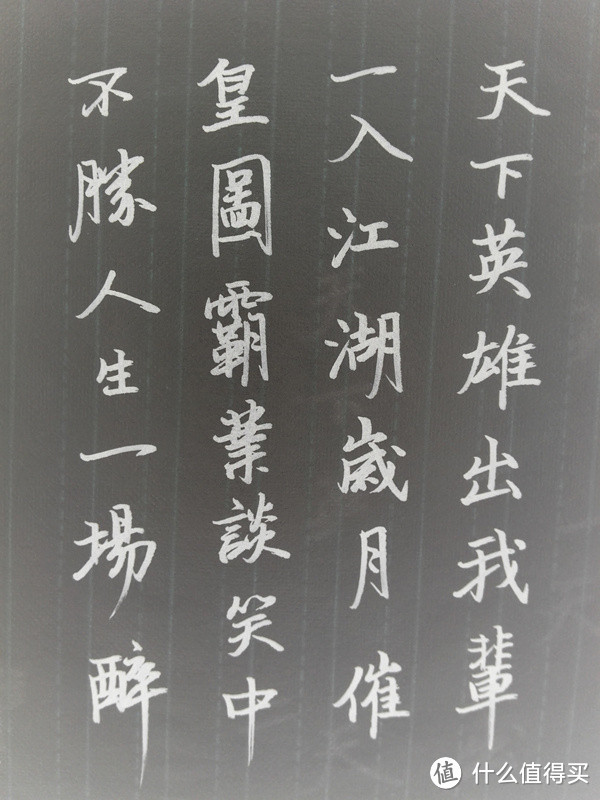 天下英雄出我輩
一入江湖歲月催
皇圖霸業談笑中
不勝人生一場醉
值 什么值得买